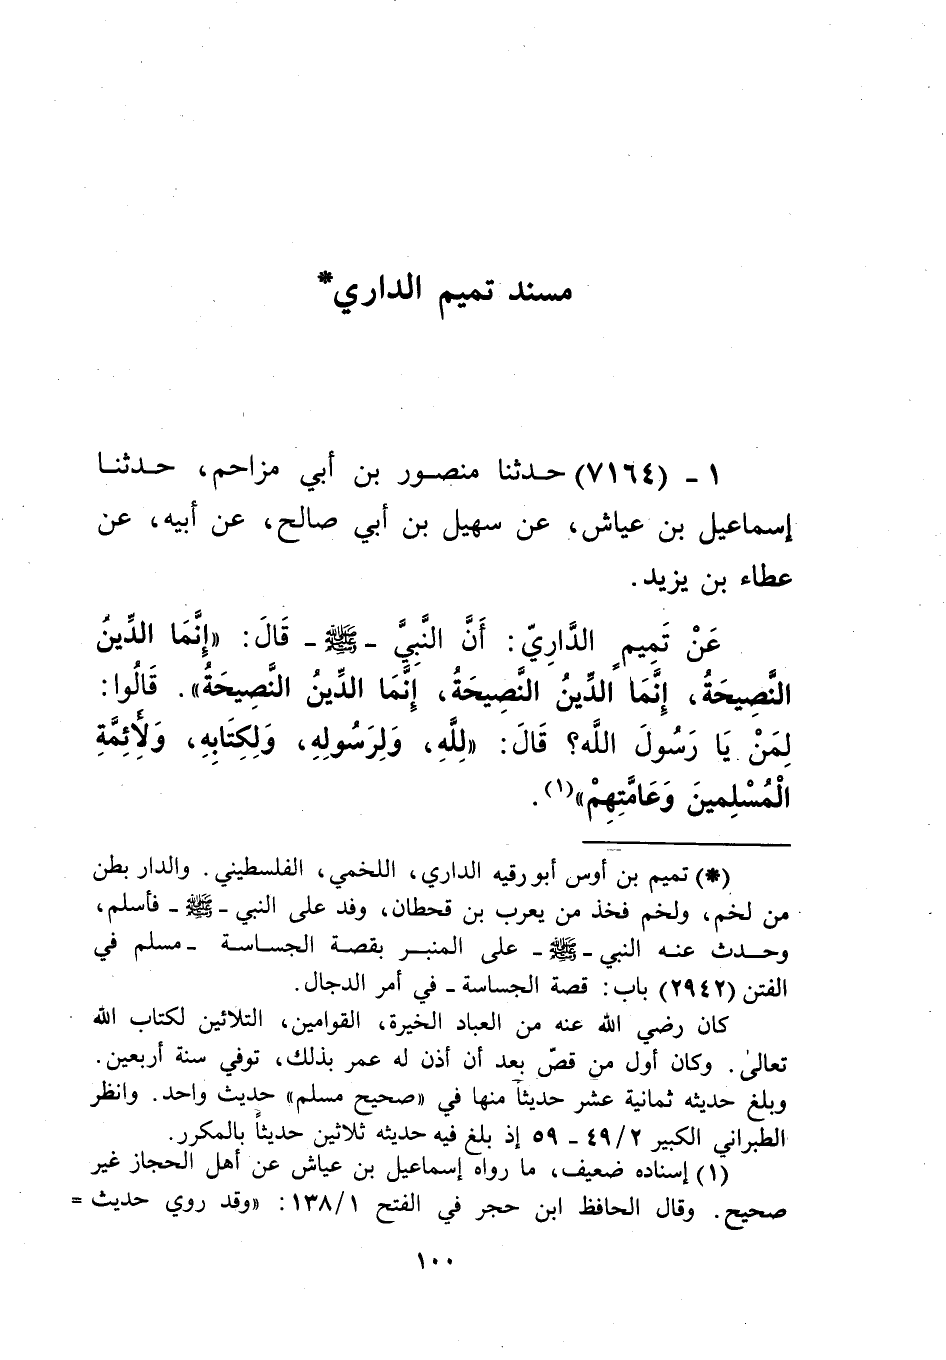 مسند تميم الداري*
١ - (٧١٦٤) حـدثنا منصـور بن أبي مزاحم، حـدثنـا
إسماعيل بن عياش، عن سهيل بن أبي صالح، عن أبيه، عن
عطاء بن يزيد.
عَنْ تَمِيمٍ الدَّارِيّ: أَنَّ النَّبِيَّ - ﷺ - قَالَ: «إِنَّمَا الدِّينُ
النَّصِيحَةُ، إِنَّمَا الدِّينُ النَّصِيحَةُ، إِنَّمَا الدِّينُ النَّصِيحَةُ». قَالُوا:
لِمَنْ يَا رَسُولَ اللَّه؟ قَالَ: «لِلَّهِ، وَلِرَسُولِهِ، وَلِكِتَابِهِ، وَلأَئِمَّةِ
الْمُسْلِمِينَ وَعَامَّتِهِمْ»(١).
(*) تميم بن أوس أبو رقيه الداري، اللخمي، الفلسطيني. والدار بطن
من لخم، ولخم فخذ من يعرب بن قحطان، وفد على النبي - ﷺ - فأسلم،
وحـدث عنـه النبي - ﷺ - على المنبـر بقصـة الجسـاسـة - مسلم في
الفتن (٢٩٤٢) باب: قصة الجساسة - في أمر الدجال.
كان رضي الله عنه من العباد الخيرة، القوامين، التلائين لكتاب الله
تعالى. وكان أول من قصّ بعد أن أذن له عمر بذلك، توفي سنة أربعين.
وبلغ حديثه ثمانية عشر حديثاً منها في «صحيح مسلم» حديث واحد. وانظر
الطبراني الكبير ٤٩/٢ - ٥٩ إذ بلغ فيه حديثه ثلاثين حديثاً بالمكرر.
(١) إسناده ضعيف، ما رواه إسماعيل بن عياش عن أهل الحجاز غير
صحيح. وقال الحافظ ابن حجر في الفتح ١٣٨/١: «وقد روي حديث =
١٠٠